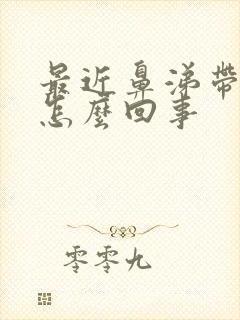 最近鼻涕帶
怎麼回事
零零九